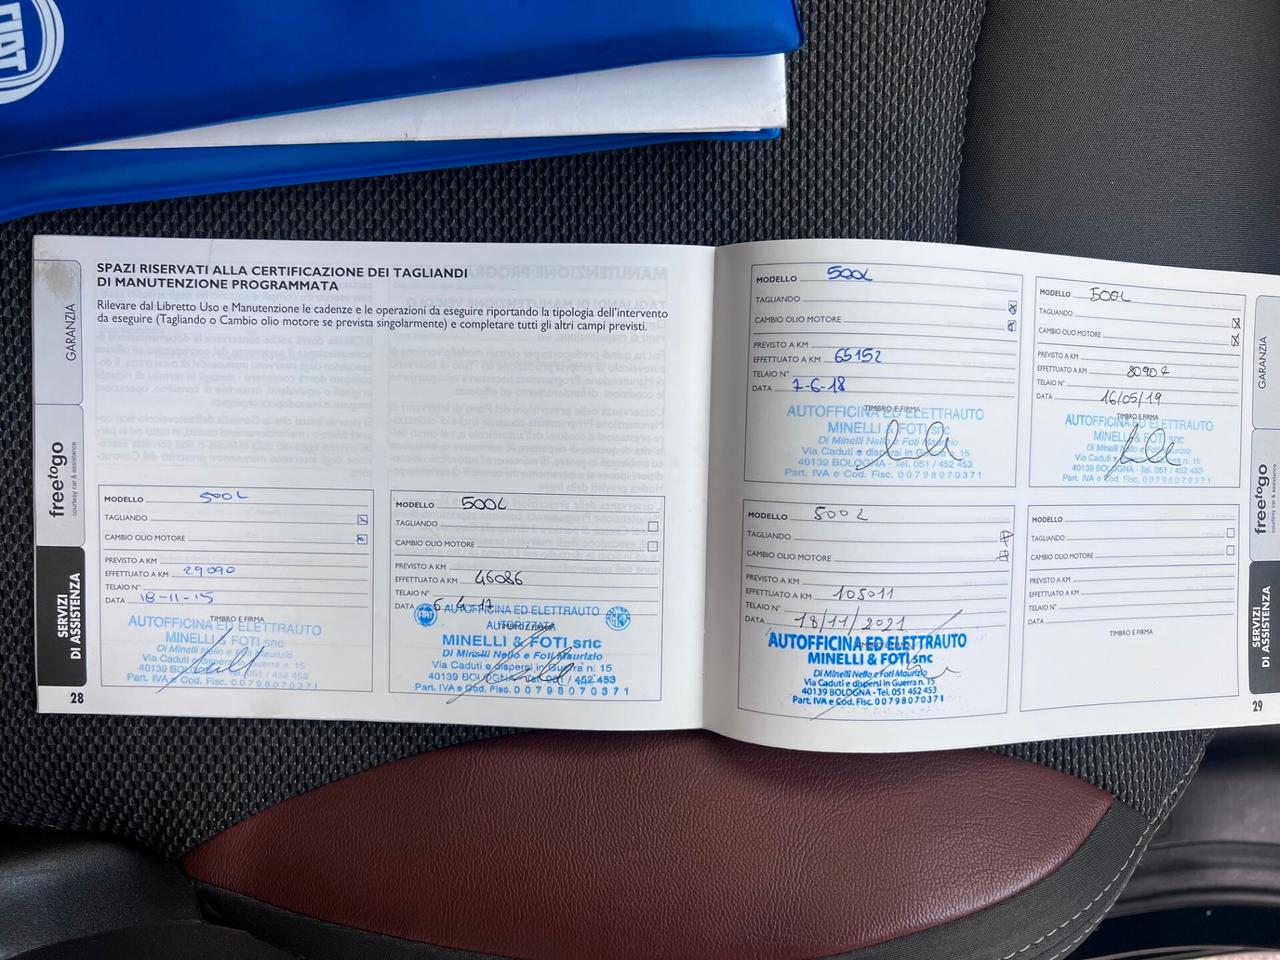 FIAT
GARANZIA
freetogo
courtesy car & assistance
SERVIZI
DI ASSISTENZA
28
SPAZI RISERVATI ALLA CERTIFICAZIONE DEI TAGLIANDI
DI MANUTENZIONE PROGRAMMATA
Rilevare dal Libretto Uso e Manutenzione le cadenze e le operazioni da eseguire riportando la tipologia dell'intervento
da eseguire (Tagliando o Cambio olio motore se prevista singolarmente) e completare tutti gli altri campi previsti.
MODELLO 500L
TAGLIANDO
CAMBIO OLIO MOTORE
PREVISTO A KM
EFFETTUATO A KM 29090
TELAIO N°
DATA 18-11-15
TIMBRO E FIRMA
AUTOFFICINA ED ELETTRAUTO
MINELLI & FOTI snc
Di Minelli Nello e Foti Maurizio
Via Caduti e dispersi in Guerra n. 15
40139 BOLOGNA - Tel. 051 / 452 453
Part. IVA e Cod. Fisc. 00798070371
MODELLO 500L
TAGLIANDO
CAMBIO OLIO MOTORE
PREVISTO A KM
EFFETTUATO A KM 46086
TELAIO N°
DATA 6.4.17
FIAT
AUTOFFICINA ED ELETTRAUTO
AUTORIZZATA
TIMBRO E FIRMA
MINELLI & FOTI snc
Di Minelli Nello e Foti Maurizio
Via Caduti e dispersi in Guerra n. 15
40139 BOLOGNA - Tel. 051 / 452 453
Part. IVA e Cod. Fisc. 00798070371
MODELLO 500L
TAGLIANDO
CAMBIO OLIO MOTORE
PREVISTO A KM
EFFETTUATO A KM 65152
TELAIO N°
DATA 7-6-18
TIMBRO E FIRMA
AUTOFFICINA ED ELETTRAUTO
MINELLI & FOTI snc
Di Minelli Nello e Foti Maurizio
Via Caduti e dispersi in Guerra n. 15
40139 BOLOGNA - Tel. 051 / 452 453
Part. IVA e Cod. Fisc. 00798070371
MODELLO 500L
TAGLIANDO
CAMBIO OLIO MOTORE
PREVISTO A KM
EFFETTUATO A KM
TELAIO N°
DATA 16/05/19
TIMBRO E FIRMA
AUTOFFICINA ED ELETTRAUTO
MINELLI & FOTI snc
Di Minelli Nello e Foti Maurizio
Via Caduti e dispersi in Guerra n. 15
40139 BOLOGNA - Tel. 051 / 452 453
Part. IVA e Cod. Fisc. 00798070371
MODELLO 500L
TAGLIANDO
CAMBIO OLIO MOTORE
PREVISTO A KM
EFFETTUATO A KM 105011
TELAIO N°
DATA 18/11/2021
TIMBRO E FIRMA
AUTOFFICINA ED ELETTRAUTO
MINELLI & FOTI snc
Di Minelli Nello e Foti Maurizio
Via Caduti e dispersi in Guerra n. 15
40139 BOLOGNA - Tel. 051 452 453
Part. IVA e Cod. Fisc. 00798070371
MODELLO
TAGLIANDO
CAMBIO OLIO MOTORE
PREVISTO A KM
EFFETTUATO A KM
TELAIO N°
DATA
TIMBRO E FIRMA
GARANZIA
freetogo
courtesy car & assistance
SERVIZI
DI ASSISTENZA
29